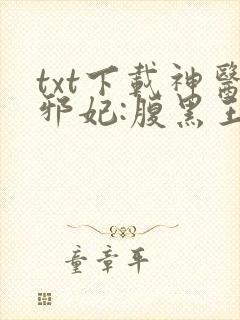 txt下載神醫
邪妃:腹黑王
童章平